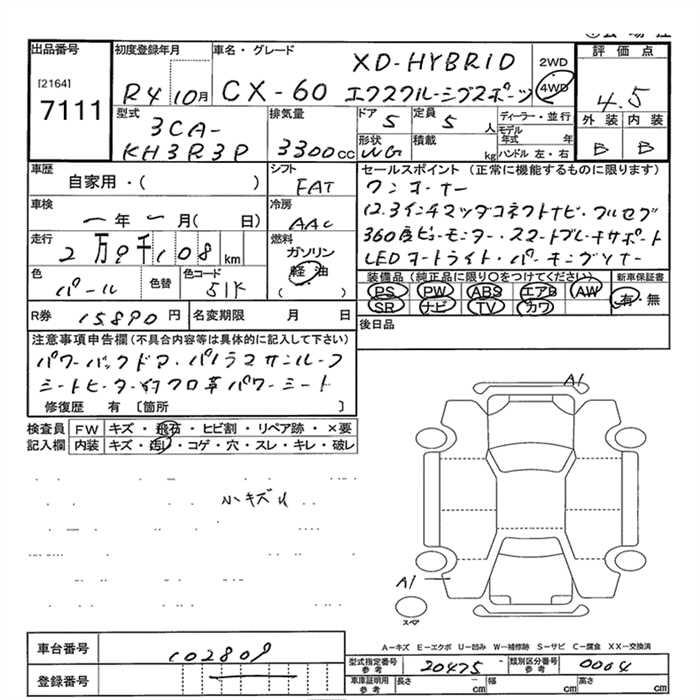 出品番号
[2164]
7111
初度登録年月
R4 10月
車名・グレード
XD-HYBRID
CX-60 エクスクルーシブスポーツ
2WD
・
4WD
評価点
4.5
外装 内装
B B
型式
3CA-
KH3R3P
排気量
3300cc
ドア
5
定員
5人
形状
WG
積載
kg
ディーラー・並行
モデル年式 年
ハンドル 左・右
車歴
自家用・( )
シフト
FAT
車検
一年一月( 日)
冷房
AAC
走行
2万8千108km
燃料
ガソリン
軽油
( ・ )
色
パール
色替
色コード
51K
R券 15890円
名変期限 月 日
セールスポイント (正常に機能するものに限ります)
ワンオーナー
12.3インチマツダコネクトナビ・フルセグ
360度ビューモニター・スマートブレーキサポート
LEDオートライト・パーキングソナー
装備品(純正品に限り○をつけてください)
新車保証書
PS PW ABS エアB AW
SR ナビ TV カワ
有・無
後日品
注意事項申告欄(不具合内容等は具体的に記入して下さい)
パワーバックドア・パノラマサンルーフ
シートヒーター付クロ革パワーシート
修復歴 有 [箇所 ]
検査員記入欄
FW キズ・飛石・ヒビ割・リペア跡・×要
内装 キズ・汚レ・コゲ・穴・スレ・キレ・破レ
小キズ
A1
A1
スペア
A-キズ E-エクボ U-凹み W-補修跡 S-サビ C-腐食 XX-交換済
車台番号
102809
登録番号
型式指定番号 参考
20475
類別区分番号 参考
0004
車庫証明用 参考
長さ cm 幅 cm 高さ cm